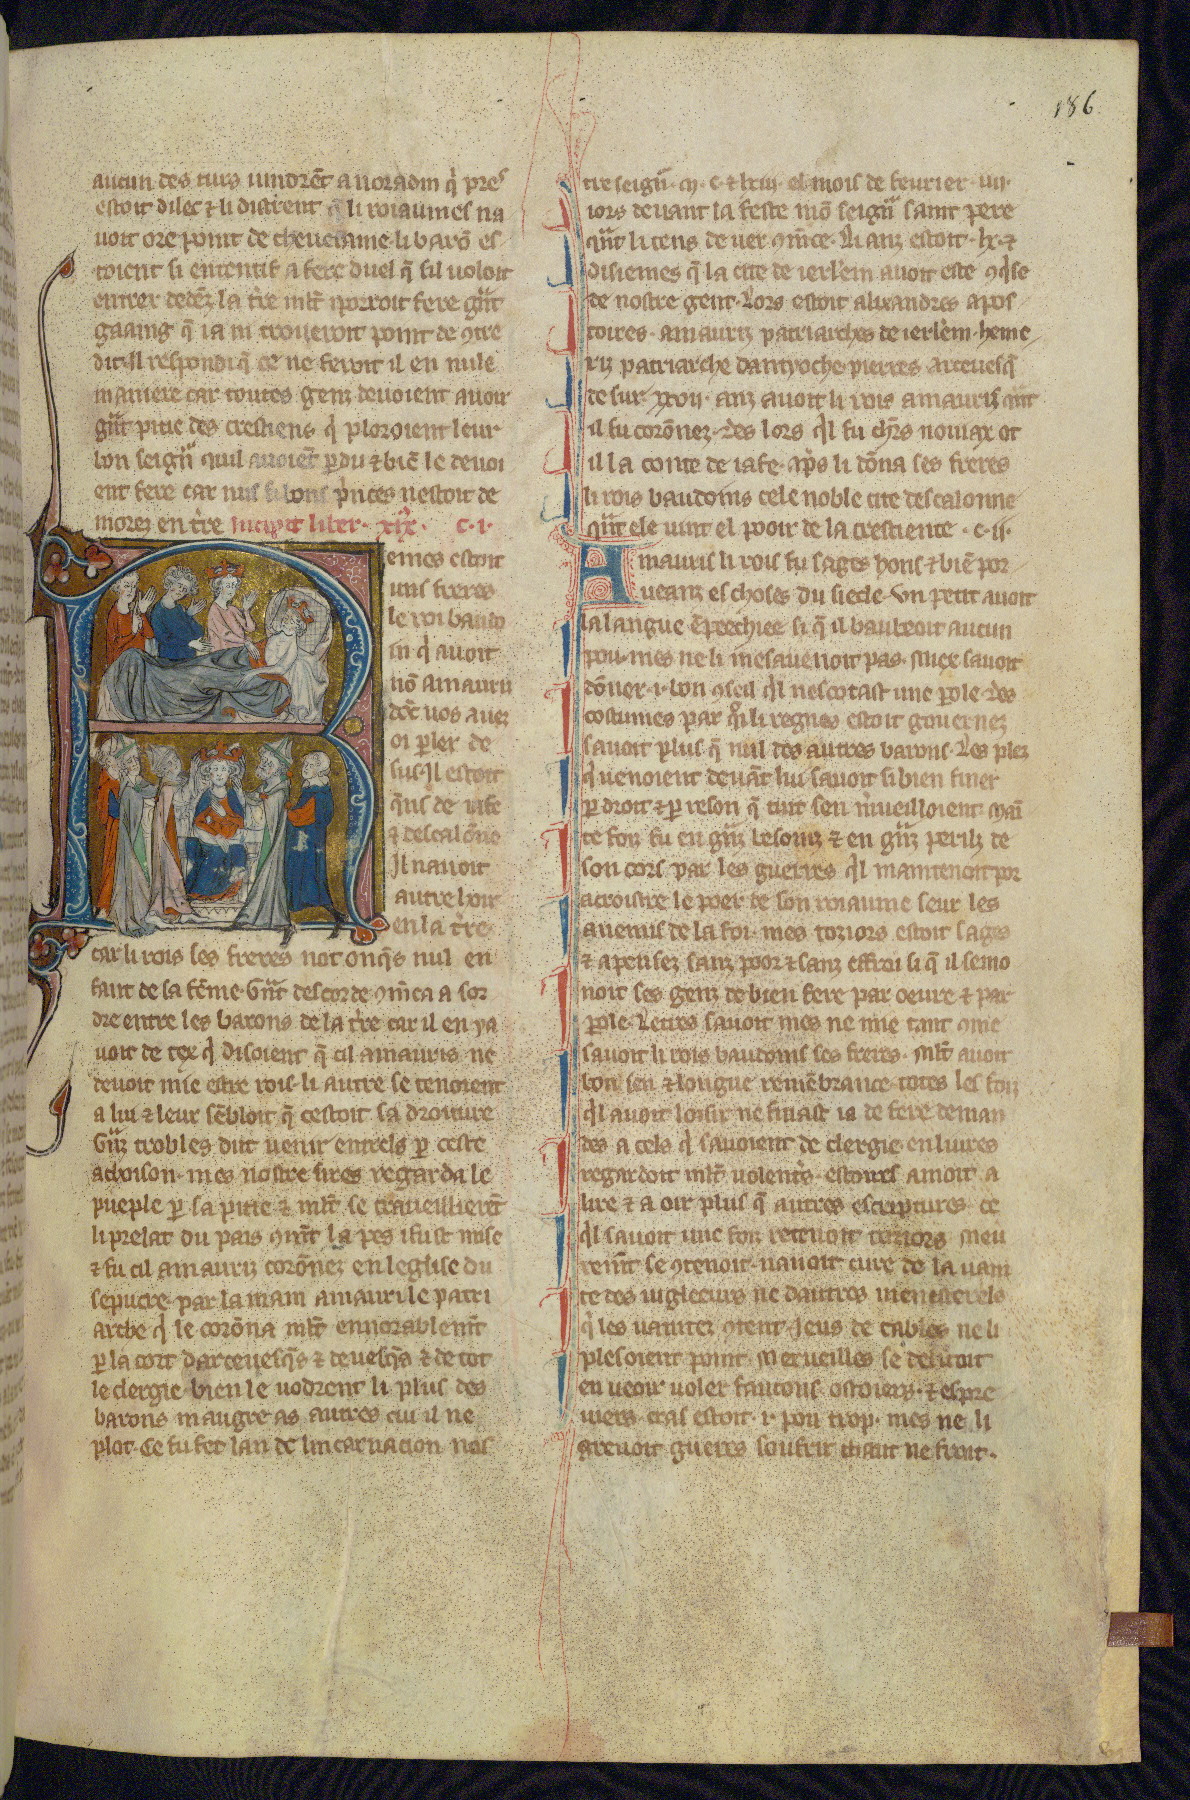 186
aucun des turs vindrēt a noradin q̇ pres
estoit dilec ⁊ li distrent q̄ li roiaumes na
voit ore point de chevetaine. li barō es
toient si ententif a fere duel q̄ sil voloit
entrer dedēz la tr̄e ml̄t i porroit fere gr̄t
gaaing q̄ ia ni troveroit point de ꝯtre
dit. Il respondi q̄ ce ne feroit il en nule
maniere car toutes genz devoient avoir
gr̄t pitie des crestiens q̇ ploroient leur
bon seign̄ quil avoiēt ꝑdu ⁊ biē le devoi
ent fere car nus si bons ṗnces nestoit de
morez en tr̄e Incipit liber. xix. c. i.
emes estoit
uns freres
le roi baud
in q̇ avoit
nō amauri
dōt vos avez
oi ꝑler de
sus. Il estoit
q̄ns de iafe
⁊ descalōne
Il navoit
autre hoir
en la tr̄e.
car li rois ses freres not onq̄s nul en
fant de sa fēme. Gr̄t descorde ꝯm̄ca a sor
dre entre les barons de la tr̄e car il en ya
voit de tex q̇ disoient q̄ cil amauris ne
devoit mie estre rois. li autre se tenoient
a lui ⁊ leur sēbloit q̄ cestoit sa droiture
Gr̄z trobles dut venir entrels ꝑ ceste
achoison. mes nostre sires regarda le
pueple ꝑ sa pitie ⁊ ml̄t se traveillierēt
li prelat du pais q̄nt la pes i fust mise
⁊ fu cil amauriz corōnez en leglise du
sepucre. par la main amauri le patri
arche q̇ le corōna ml̄t ennorablem̄t
ꝑ la cort darcevesq̄s ⁊ devesq̄s ⁊ de tot
le clergie. bien le vodrent li plus des
barons maugre as autres cui il ne
plot. Ce fu fet lan de lincarnacion nos
tre seign̄. m. c. ⁊ lxiii. el mois de fevrier. viii.
iors devant la feste mō seign̄ saint pere
qūt li tens de ver ꝯm̄ce. Li anz estoit. lx. ⁊
disiemes q̄ la cite de ierl̄em avoit este ꝯq̇se
de nostre gent. Lors estoit alixandres apos
toires. amauriz patriarches de ierl̄em. heme
riz patriarche dantyoche. pierres arcevesq̄
de sur. xxvii. anz avoit li rois amauriz qūt
il fu corōnez. des lors q̇l fu chr̄s noviax ot
il la conte de iafe. ap̄s li dōna ses freres
li rois baudoins cele noble cite descalonne
qūt ele vint el pooir de la crestiente. c. ii.
Amauris li rois fu sages hons ⁊ biē por
veanz es choses du siecle. Un petit avoit
la langue ēpeechiee si q̄ il baubeoit aucun
pou. mes ne li mesavenoit pas. Miex savoit
dōner. i. bon ꝯseil q̇l nescotast une ꝑole. des
costumes par q̇i li regnes estoit governez
savoit plus q̄ nul des autres barons. Les plez
q̇ venoient devāt lui savoit si bien finer
ꝑ droit ⁊ ꝑ reson q̄ tuit sen m̄veilloient. Mai
te foiz fu en gr̄z besoinz ⁊ en gr̄z perilz de
son cors par les guerres q̇l maintenoit por
acroistre le poer de son roiaume seur les
anemis de la foi. mes toziors estoit sages
⁊ apensez sanz poor ⁊ sanz effroi si q̄ il semo
noit ses genz de bien fere par oevre ⁊ par
ꝑole. Letres savoit mes ne mie tant ꝯme
savoit li rois baudoins ses freres. Ml̄t avoit
bon sen ⁊ longue remēbrance. totes les foiz
q̇l avoit loisir ne finast ia de fere deman
des a cels q̇ savoient de clergie. en livres
regardoit ml̄t volent̄s. estoires amoit a
lire ⁊ a oir plus q̄ autres escriptures. ce
q̇l savoit une foiz retenoit toziors. Meu
rem̄t se ꝯtenoit. navoit cure de la vani
te des iugleeurs ne dautres menesterels
q̇ les vanitez ꝯtent. Jeus de tables ne li
plesoient point. Merveilles se delitoit
en veoir voler faucons ostoiers. ⁊ espre
viers. cras estoit. i. pou trop. mes ne li
grevoit gueres soufrir chaut ne froit.